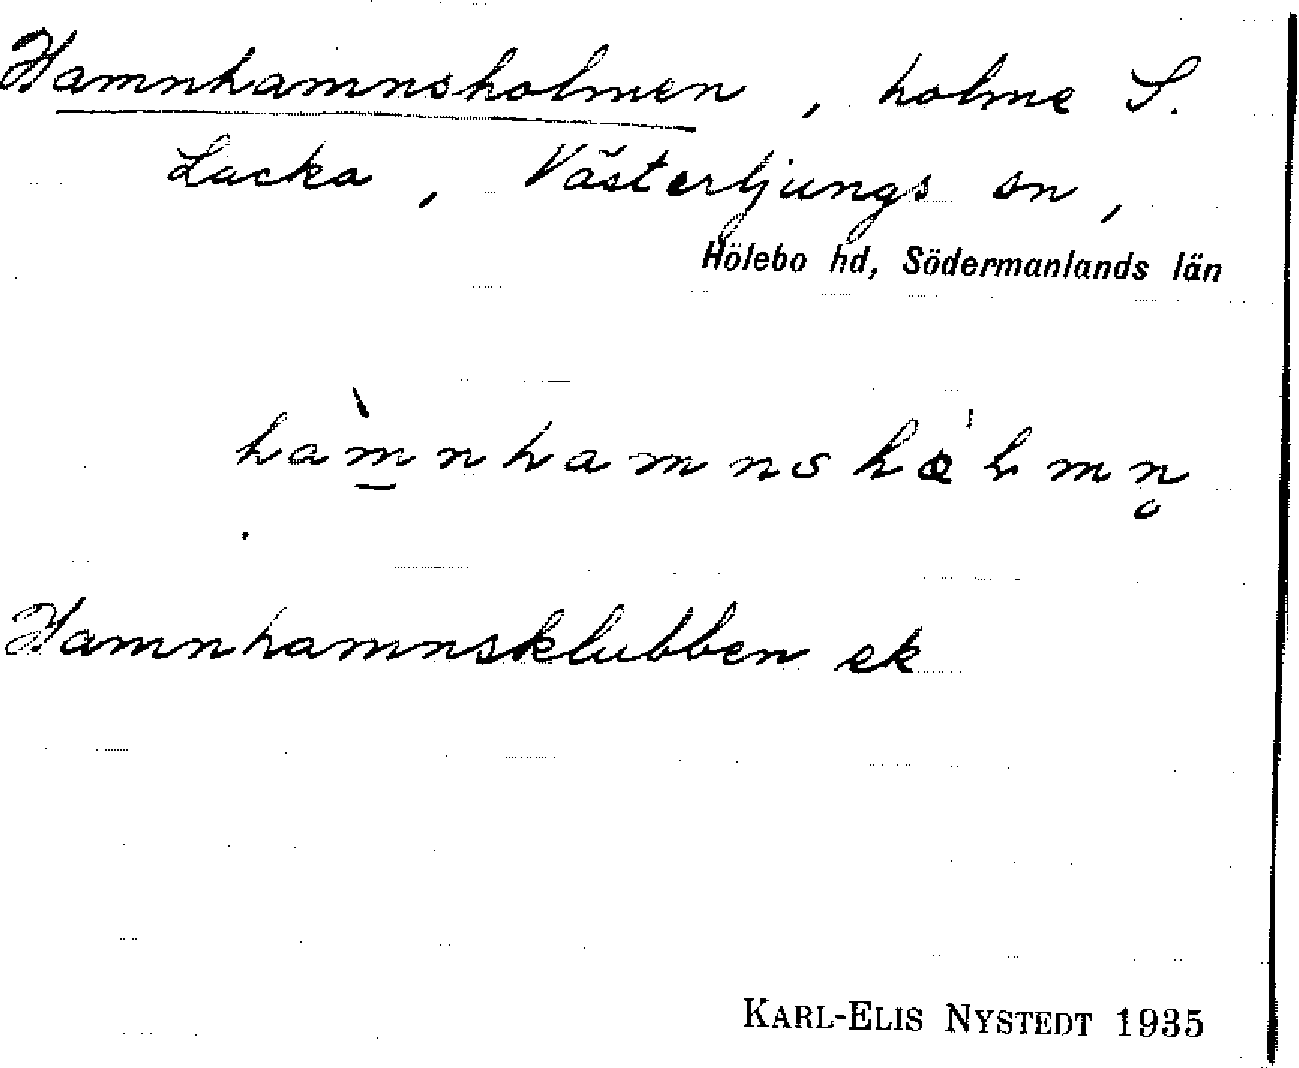 Hamnhamnsholmen, holme S.
Lacka, Västerljungs sn,
Hölebo hd, Södermanlands län
hàm̲nhamnshòlmn̥
Hamnhamnsklubben ek
KARL-ELIS NYSTEDT 1935